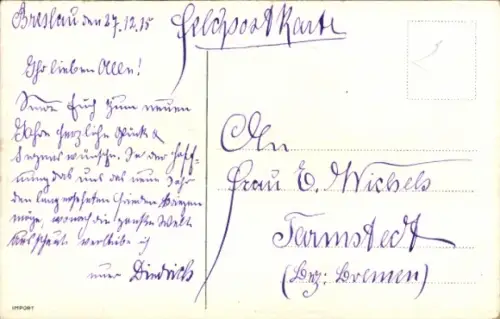 Breslau den 27.12.15
Feldpostkarte
Ihr lieben Alle!
Sende Euch zum neuen
Jahre herzliche Glück &
Segenswünsche. In der Hoff-
nung das uns das neue Jahr
den lang ersehnten Frieden bringen
möge, wonach die ganze Welt
ausschaut verbleibe ich
Euer Diedrich
An
Frau E. Michels
Tarmstedt
(Bez: Bremen)
IMPORT